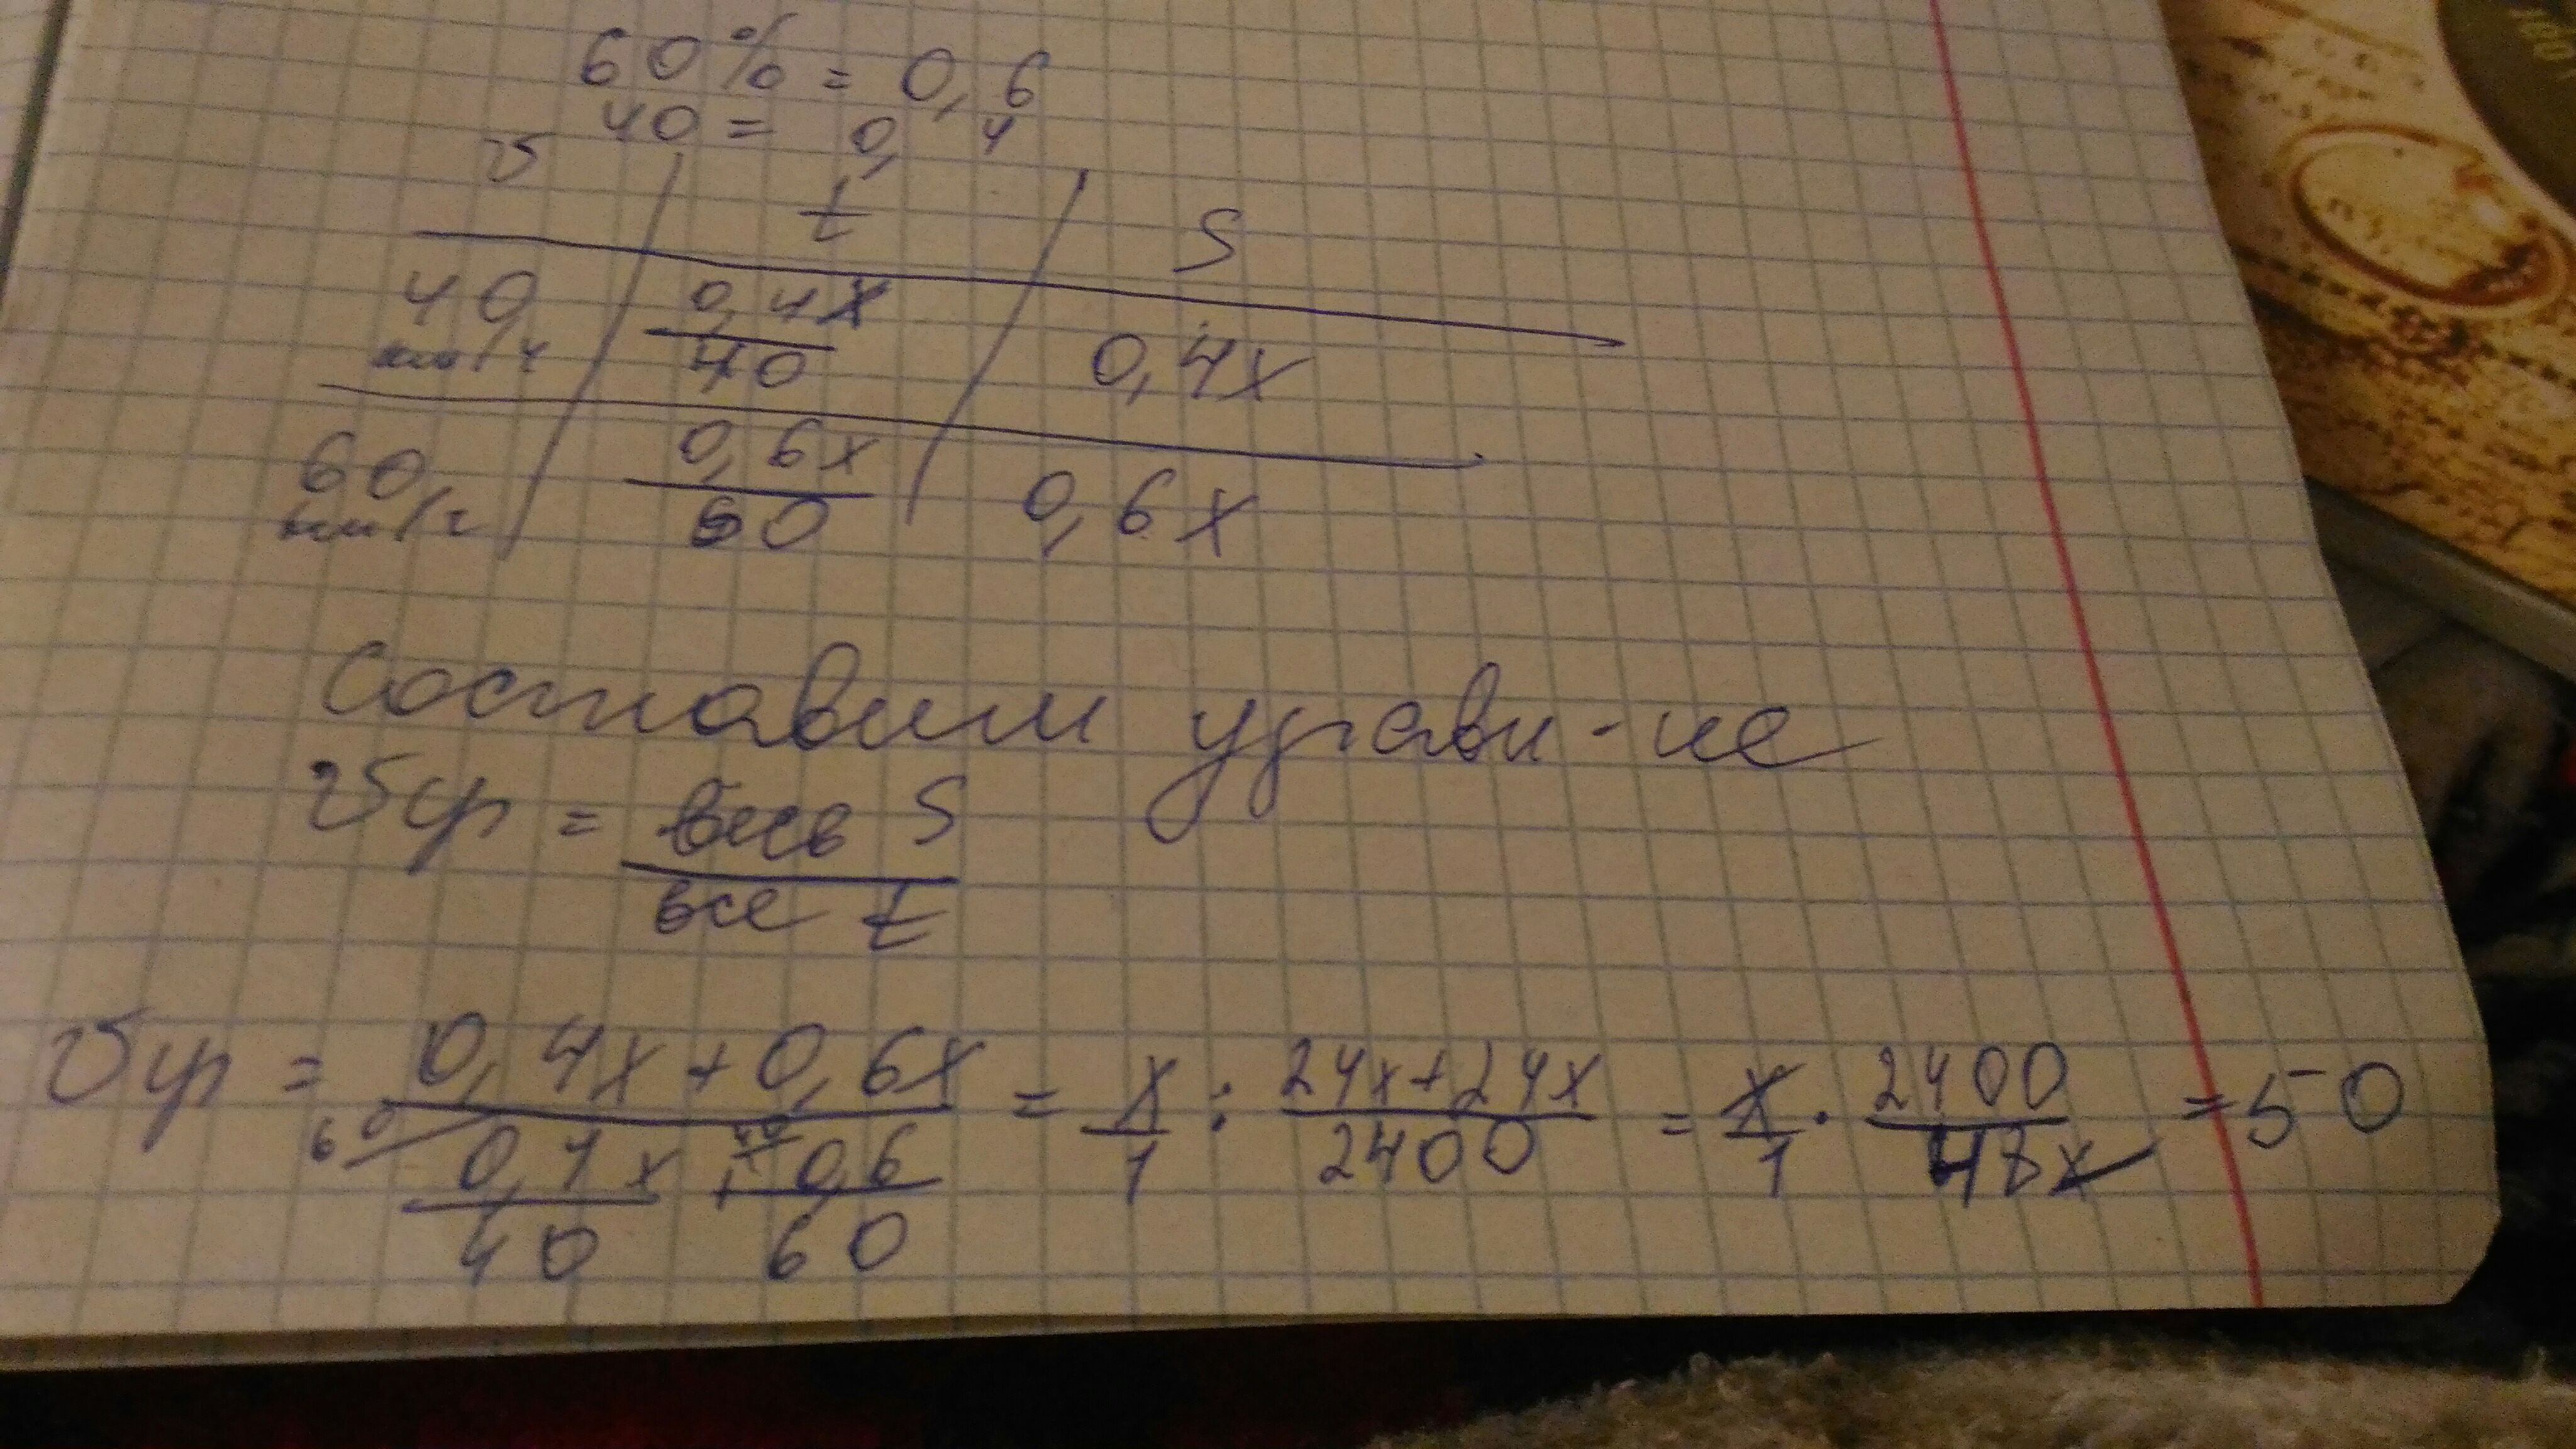 60% = 0,6
40 = 0,4
v t S
40 км/ч 0,4x/40 0,4x
60 км/ч 0,6x/60 0,6x
Составим уравн-ие
vср = весь S/все t
vср = 0,4x+0,6x = x/1 : 24x+24x/2400 = x/1 · 2400/48x = 50
60 0,4x/40 + 40 0,6/60